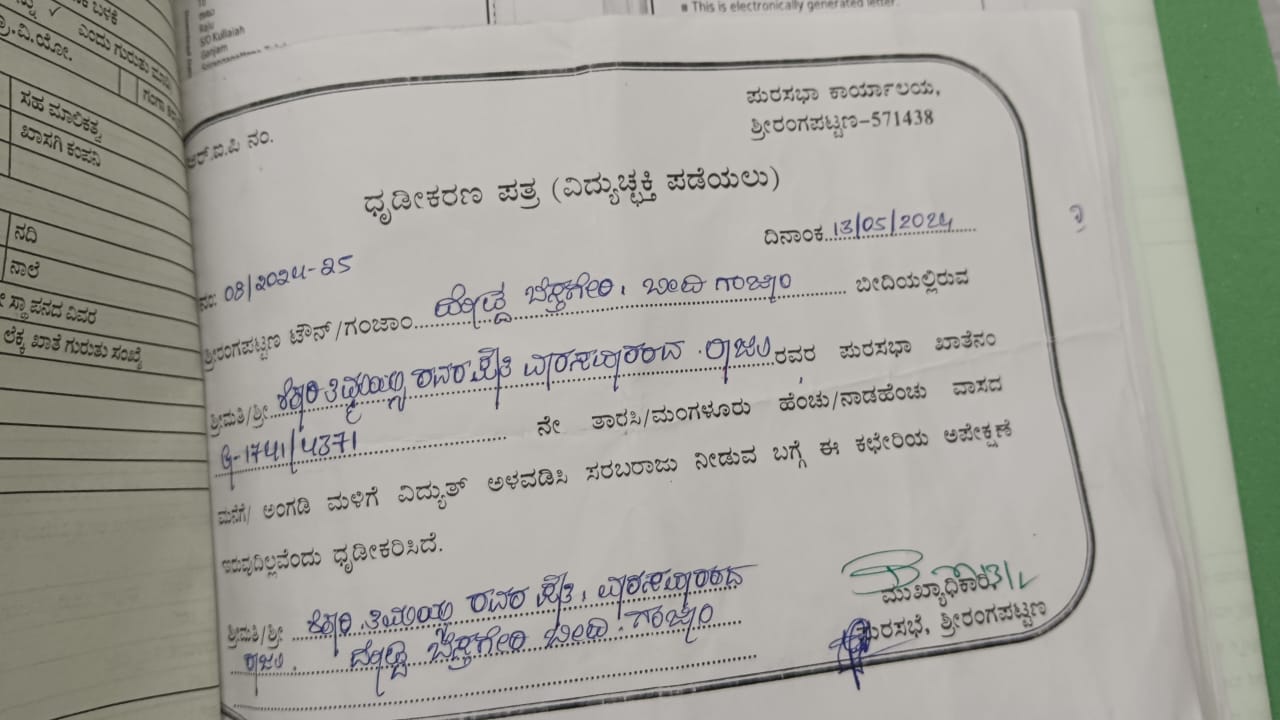 ಎಂದು ಗುರುತು
ಸಹ ಮಾಲಿಕತ್ವ
ಖಾಸಗಿ ಕಂಪನಿ
ನದಿ
ನಾಲೆ
ಸ್ಥಾಪನದ ವಿವರ
ಲೆಕ್ಕ ಖಾತೆ ಗುರುತು ಸಂಖ್ಯೆ
To
Raju
S/O Kullaiah
Ganjam
▪ This is electronically generated letter.
ಪುರಸಭಾ ಕಾರ್ಯಾಲಯ,
ಶ್ರೀರಂಗಪಟ್ಟಣ-571438
ಆರ್.ಐ.ಪಿ ನಂ.
ಧೃಡೀಕರಣ ಪತ್ರ (ವಿದ್ಯುಚ್ಛಕ್ತಿ ಪಡೆಯಲು)
ದಿನಾಂಕ 13/05/2024
ನಂ: 08/2024-25
ಶ್ರೀರಂಗಪಟ್ಟಣ ಟೌನ್/ಗಂಜಾಂ ದೊಡ್ಡ ಬೆಸ್ತಗೇರಿ, ಬೀದಿ ಗಂಜಾಂ ಬೀದಿಯಲ್ಲಿರುವ
ಶ್ರೀಮತಿ/ಶ್ರೀ ರವರ ರಾಜು ರವರ ಪುರಸಭಾ ಖಾತೆನಂ
1741/4371 ನೇ ತಾರಸಿ/ಮಂಗಳೂರು ಹೆಂಚು/ನಾಡಹೆಂಚು ವಾಸದ
ಮನೆಗೆ/ ಅಂಗಡಿ ಮಳಿಗೆ ವಿದ್ಯುತ್ ಅಳವಡಿಸಿ ಸರಬರಾಜು ನೀಡುವ ಬಗ್ಗೆ ಈ ಕಛೇರಿಯ ಅಪೇಕ್ಷಣೆ
ಇರುವುದಿಲ್ಲವೆಂದು ಧೃಡೀಕರಿಸಿದೆ.
ಮುಖ್ಯಾಧಿಕಾರಿ
ಪುರಸಭೆ, ಶ್ರೀರಂಗಪಟ್ಟಣ
ಶ್ರೀಮತಿ/ಶ್ರೀ ರವರ
ರಾಜು. ದೊಡ್ಡ ಬೆಸ್ತಗೇರಿ ಬೀದಿ. ಗಂಜಾಂ